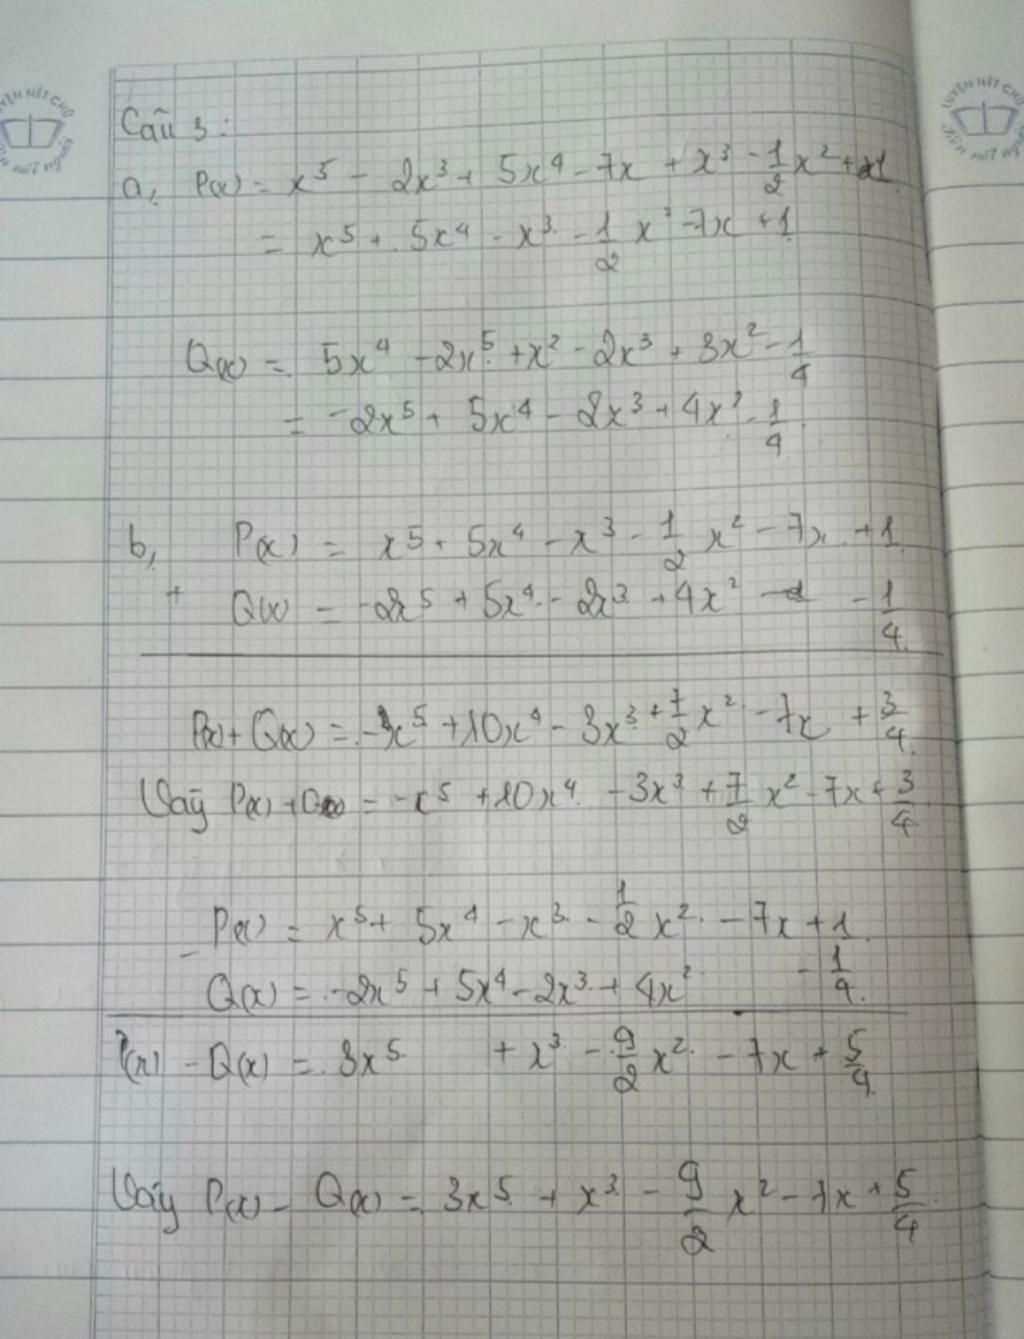 LUYỆN NÉT CHỮ
Rèn nết người
Câu 3:
a, P(x) = x⁵ - 2x³ + 5x⁴ - 7x + x³ - 1/2 x² + 1
= x⁵ + 5x⁴ - x³ - 1/2 x² - 7x + 1
Q(x) = 5x⁴ - 2x⁵ + x² - 2x³ + 3x² - 1/4
= -2x⁵ + 5x⁴ - 2x³ + 4x² - 1/4
b, P(x) = x⁵ + 5x⁴ - x³ - 1/2 x² - 7x + 1
+ Q(x) = -2x⁵ + 5x⁴ - 2x³ + 4x² - 1/4
P(x) + Q(x) = -x⁵ + 10x⁴ - 3x³ + 7/2 x² - 7x + 3/4
Vậy P(x) + Q(x) = -x⁵ + 10x⁴ - 3x³ + 7/2 x² - 7x + 3/4
- P(x) = x⁵ + 5x⁴ - x³ - 1/2 x² - 7x + 1
Q(x) = -2x⁵ + 5x⁴ - 2x³ + 4x² - 1/4
P(x) - Q(x) = 3x⁵ + x³ - 9/2 x² - 7x + 5/4
Vậy P(x) - Q(x) = 3x⁵ + x³ - 9/2 x² - 7x + 5/4
LUYỆN NÉT CHỮ
Rèn nết người